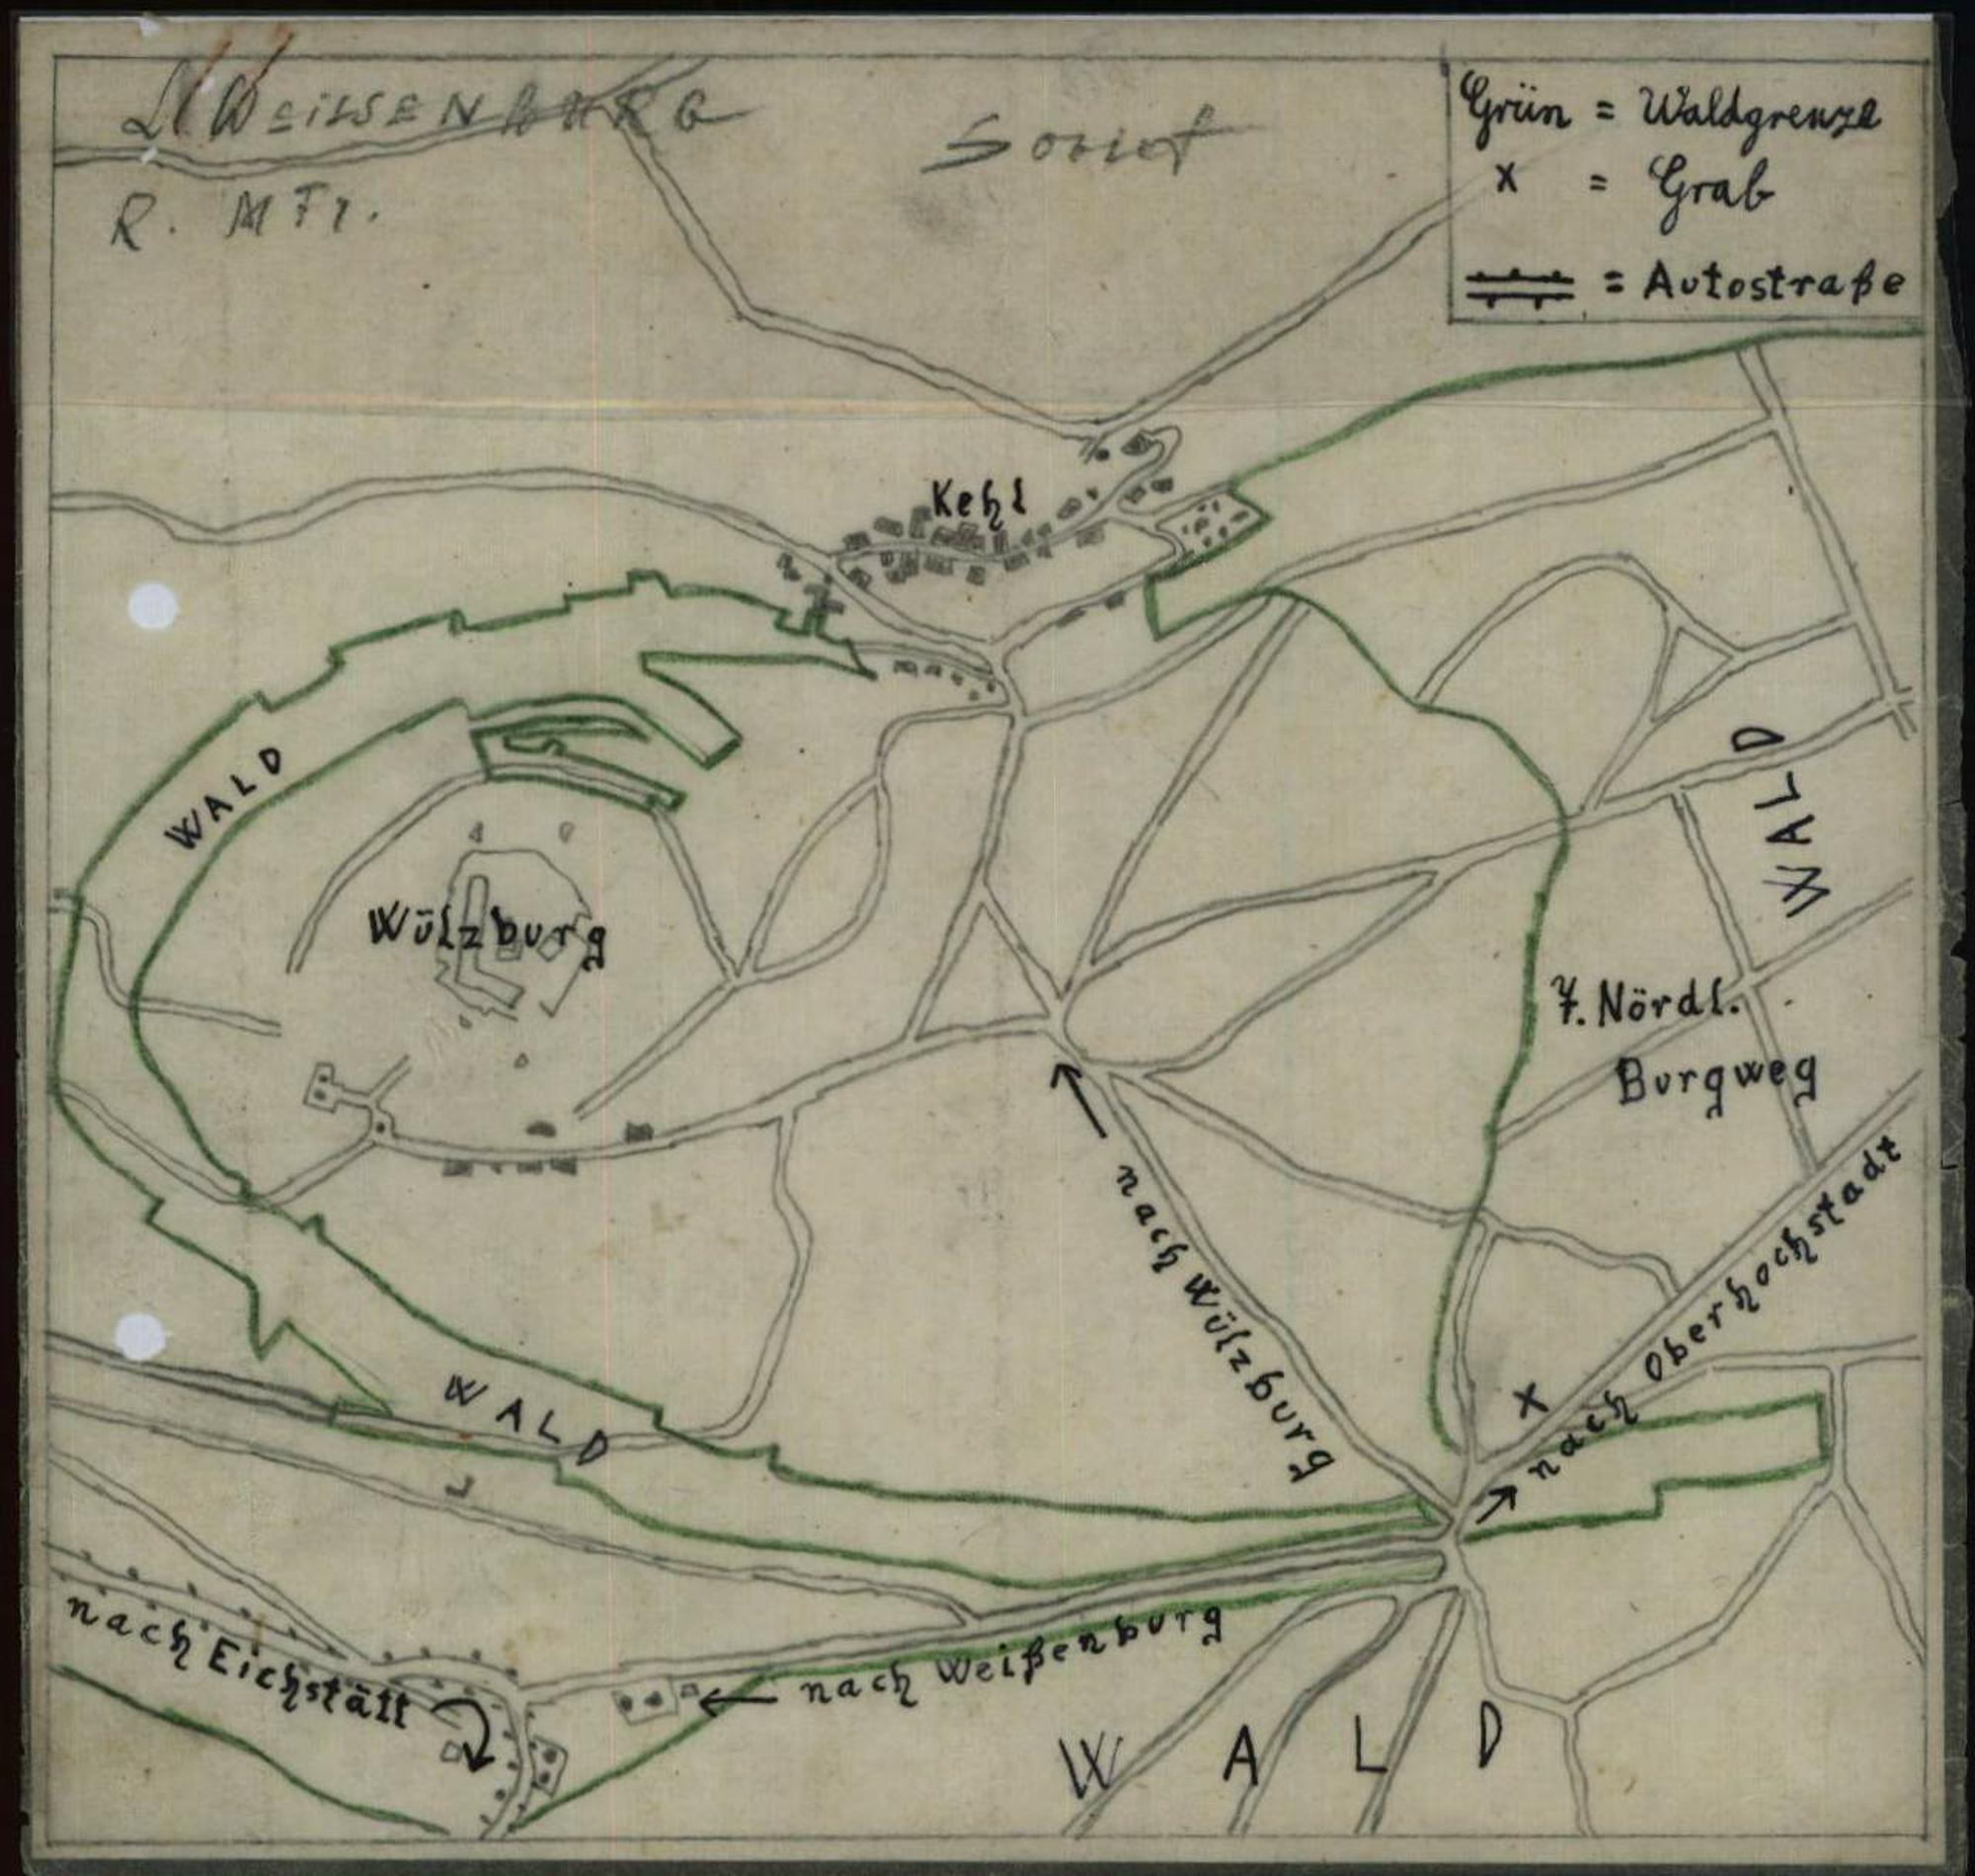 LK WEiLSENBURG
Soviet
R. MFr.
Grün = Waldgrenze
x = Grab
= Autostraße
Kehl
WALD
WALD
Wülzburg
7. Nördl.
Burgweg
nach Wülzburg
nach Oberhochstadt
x
WALD
nach Eichstätt
nach Weißenburg
WALD